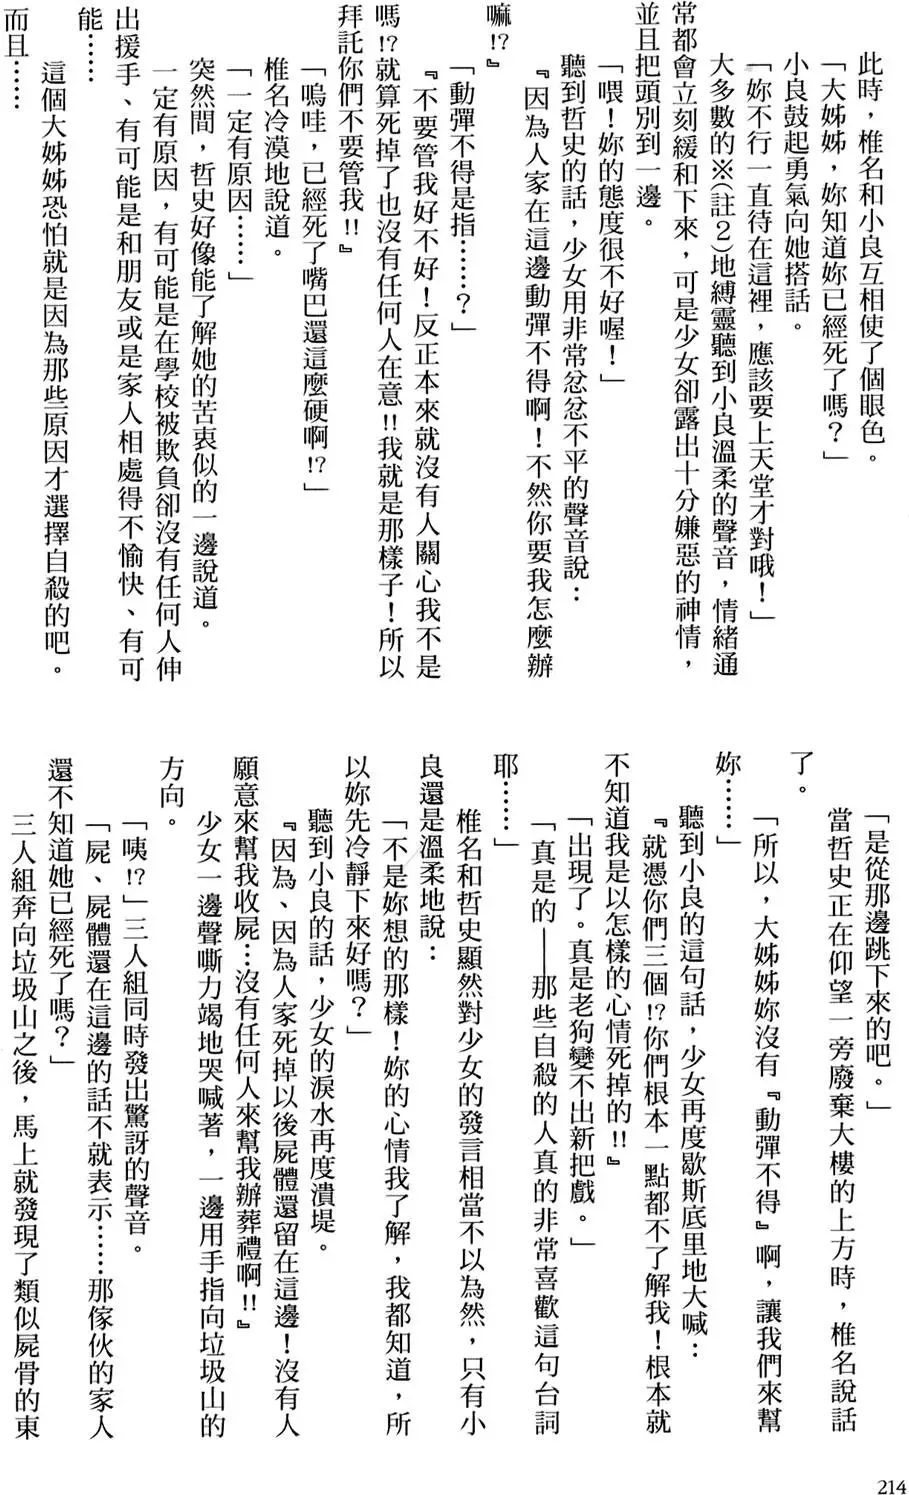 此時，椎名和小良互相使了個眼色。
「大姊姊，妳知道妳已經死了嗎？」
小良鼓起勇氣向她搭話。
「妳不行一直待在這裡，應該要上天堂才對哦！」
大多數的※（註２）地縛靈聽到小良溫柔的聲音，情緒通
常都會立刻緩和下來，可是少女卻露出十分嫌惡的神情，
並且把頭別到一邊。
「喂！妳的態度很不好喔！」
聽到哲史的話，少女用非常忿忿不平的聲音說：
『因為人家在這邊動彈不得啊！不然你要我怎麼辦
嘛!?』
「動彈不得是指……？」
『不要管我好不好！反正本來就沒有人關心我不是
嗎!?就算死掉了也沒有任何人在意!!我就是那樣子！所以
拜託你們不要管我!!』
「嗚哇，已經死了嘴巴還這麼硬啊!?」
椎名冷漠地說道。
「一定有原因……」
突然間，哲史好像能了解她的苦衷似的一邊說道。
一定有原因，有可能是在學校被欺負卻沒有任何人伸
出援手、有可能是和朋友或是家人相處得不愉快、有可
能……
這個大姊姊恐怕就是因為那些原因才選擇自殺的吧。
而且……
「是從那邊跳下來的吧。」
當哲史正在仰望一旁廢棄大樓的上方時，椎名說話
了。
「所以，大姊姊妳沒有『動彈不得』啊，讓我們來幫
妳……」
聽到小良的這句話，少女再度歇斯底里地大喊：
『就憑你們三個!?你們根本一點都不了解我！根本就
不知道我是以怎樣的心情死掉的!!』
「出現了。真是老狗變不出新把戲。」
「真是的——那些自殺的人真的非常喜歡這句台詞
耶……」
椎名和哲史顯然對少女的發言相當不以為然，只有小
良還是溫柔地說：
「不是妳想的那樣！妳的心情我了解，我都知道，所
以妳先冷靜下來好嗎？」
聽到小良的話，少女的淚水再度潰堤。
『因為、因為人家死掉以後屍體還留在這邊！沒有人
願意來幫我收屍…沒有任何人來幫我辦葬禮啊!!』
少女一邊聲嘶力竭地哭喊著，一邊用手指向垃圾山的
方向。
「咦!?」三人組同時發出驚訝的聲音。
「屍、屍體還在這邊的話不就表示……那傢伙的家人
還不知道她已經死了嗎？」
三人組奔向垃圾山之後，馬上就發現了類似屍骨的東
214